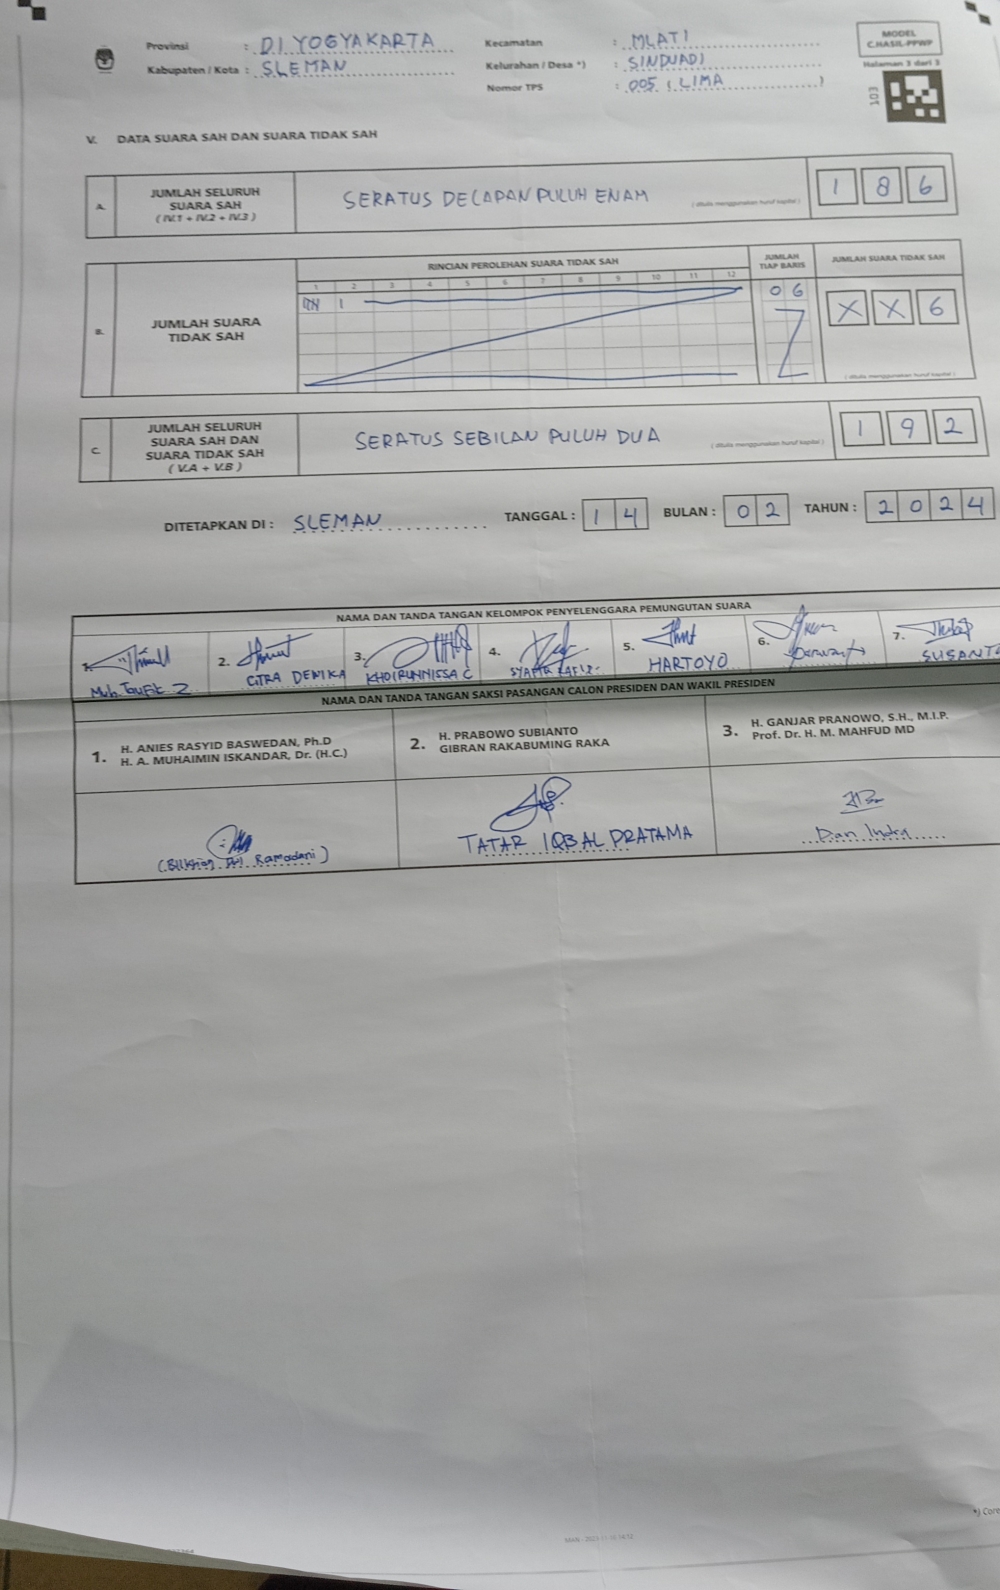 Provinsi : D.I YOGYAKARTA
Kabupaten / Kota : SLEMAN
Kecamatan : MLATI
Kelurahan / Desa *) : SINDUADI
Nomor TPS : 005 ( LIMA )
MODEL
C.HASIL-PPWP
Halaman 3 dari 3
103
V. DATA SUARA SAH DAN SUARA TIDAK SAH
A. JUMLAH SELURUH
SUARA SAH
( IV.1 + IV.2 + IV.3 )
SERATUS DELAPAN PULUH ENAM
( ditulis menggunakan huruf kapital )
1 8 6
B. JUMLAH SUARA
TIDAK SAH
RINCIAN PEROLEHAN SUARA TIDAK SAH
1 2 3 4 5 6 7 8 9 10 11 12
JUMLAH
TIAP BARIS
0 6
JUMLAH SUARA TIDAK SAH
X X 6
( ditulis menggunakan huruf kapital )
C. JUMLAH SELURUH
SUARA SAH DAN
SUARA TIDAK SAH
( V.A + V.B )
SERATUS SEBILAN PULUH DUA
( ditulis menggunakan huruf kapital )
1 9 2
DITETAPKAN DI : SLEMAN TANGGAL : 1 4 BULAN : 0 2 TAHUN : 2 0 2 4
NAMA DAN TANDA TANGAN KELOMPOK PENYELENGGARA PEMUNGUTAN SUARA
1. Muh. Taufik Z
2. CITRA DEWIKA
3. KHOIRUNNISSA C
4.
5. HARTOYO
6.
7. SUSANTO
NAMA DAN TANDA TANGAN SAKSI PASANGAN CALON PRESIDEN DAN WAKIL PRESIDEN
1. H. ANIES RASYID BASWEDAN, Ph.D
H. A. MUHAIMIN ISKANDAR, Dr. (H.C.)
2. H. PRABOWO SUBIANTO
GIBRAN RAKABUMING RAKA
3. H. GANJAR PRANOWO, S.H., M.I.P.
Prof. Dr. H. M. MAHFUD MD
Ramadani )
TATAR IQBAL PRATAMA
Dan Indra